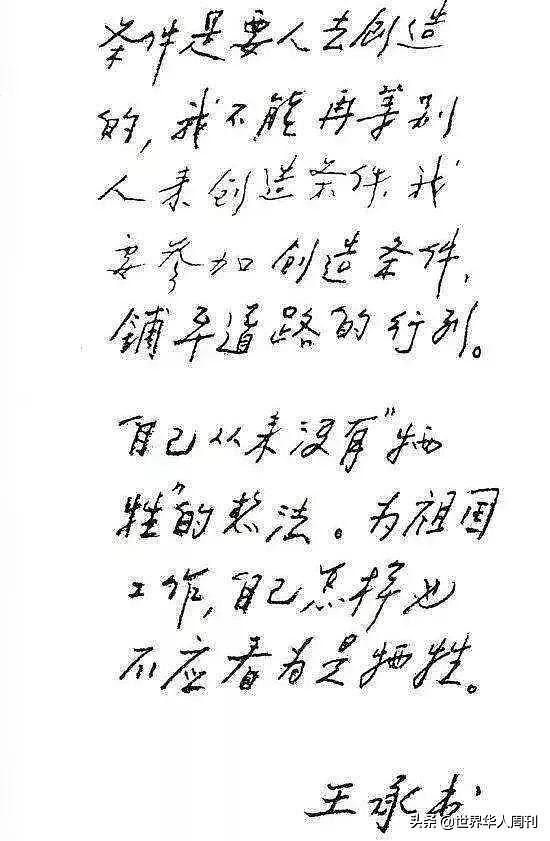 条件是要人去创造
的，我不能再等别
人来创造条件，我
要参加创造条件，
铺平道路的行列。
自己从来没有“牺
牲”的想法。为祖国
工作，自己怎样也
不应看为是牺牲。
王承书
头条 @世界华人周刊